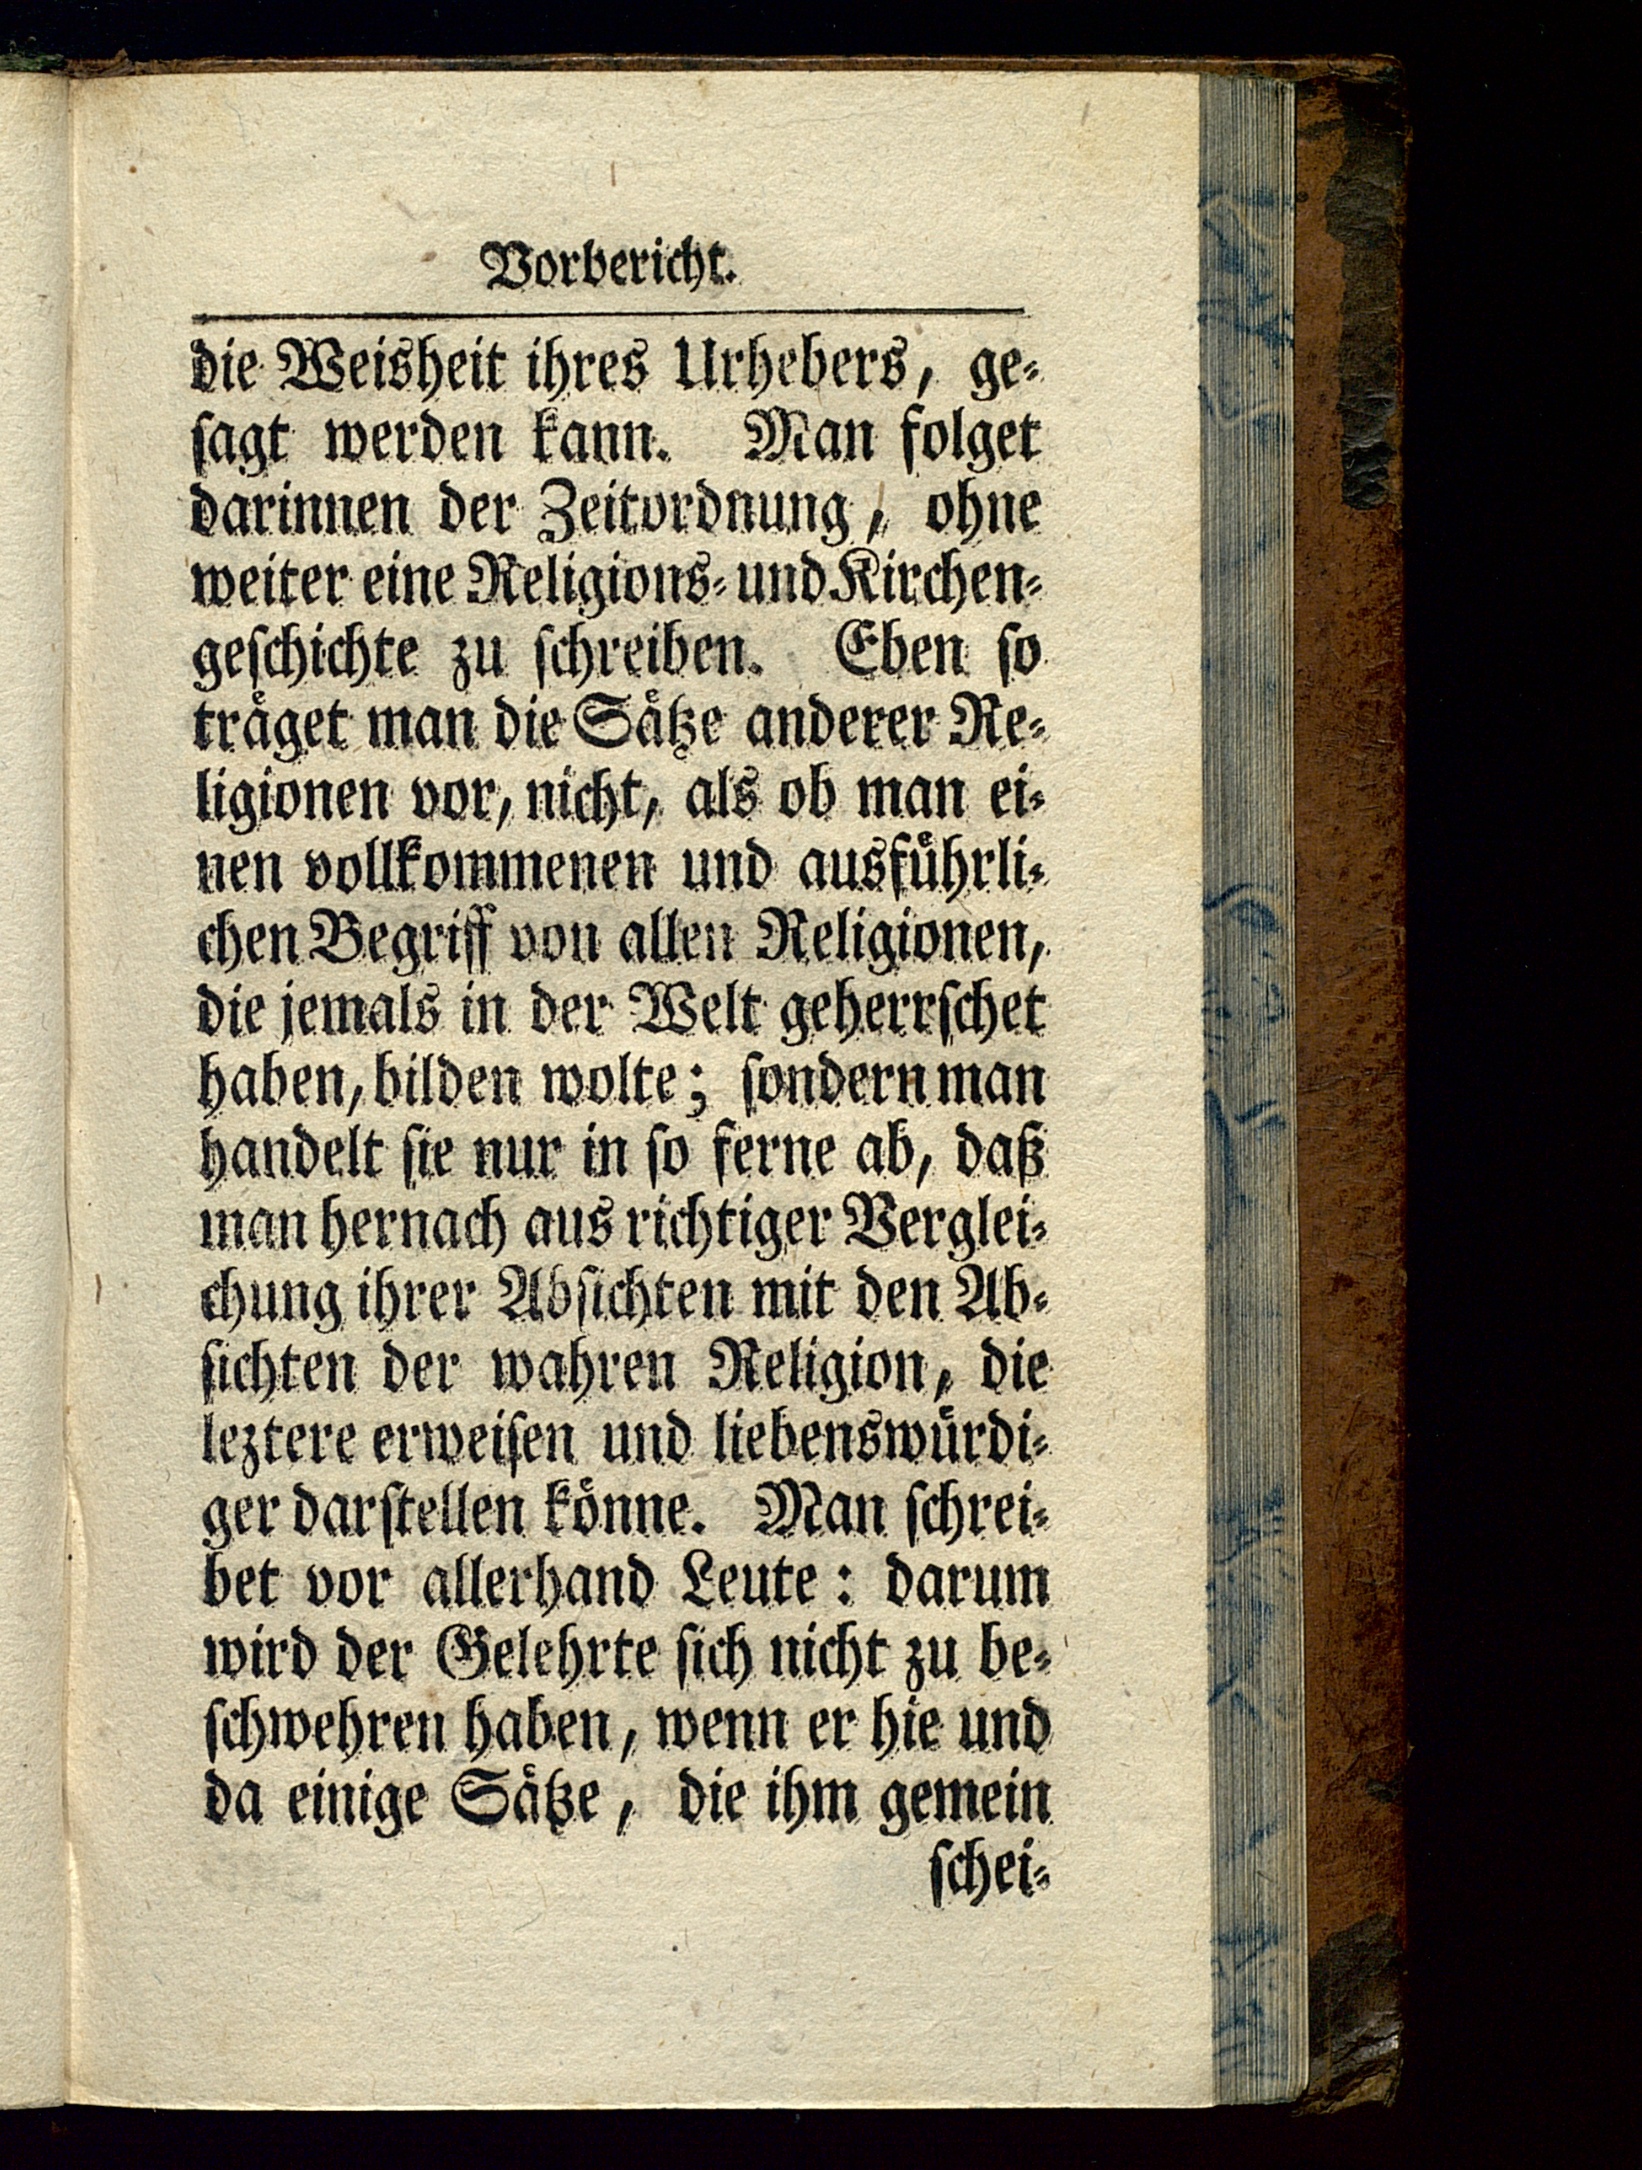 Vorbericht.
die Weisheit ihres Urhebers, ge⸗
ſagt werden kann. Man folget
darinnen der Zeitordnung, ohne
weiter eine Religions⸗ und Kirchen⸗
geſchichte zu ſchreiben. Eben ſo
traͤget man die Saͤtze anderer Re⸗
ligionen vor, nicht, als ob man ei⸗
nen vollkommenen und ausfuͤhrli⸗
chen Begriff von allen Religionen,
die jemals in der Welt geherrſchet
haben, bilden wolte; ſondern man
handelt ſie nur in ſo ferne ab, daß
man hernach aus richtiger Verglei⸗
chung ihrer Abſichten mit den Ab⸗
ſichten der wahren Religion, die
leztere erweiſen und liebenswuͤrdi⸗
ger darſtellen koͤnne. Man ſchrei⸗
bet vor allerhand Leute: darum
wird der Gelehrte ſich nicht zu be⸗
ſchwehren haben, wenn er hie und
da einige Saͤtze, die ihm gemein
ſchei⸗